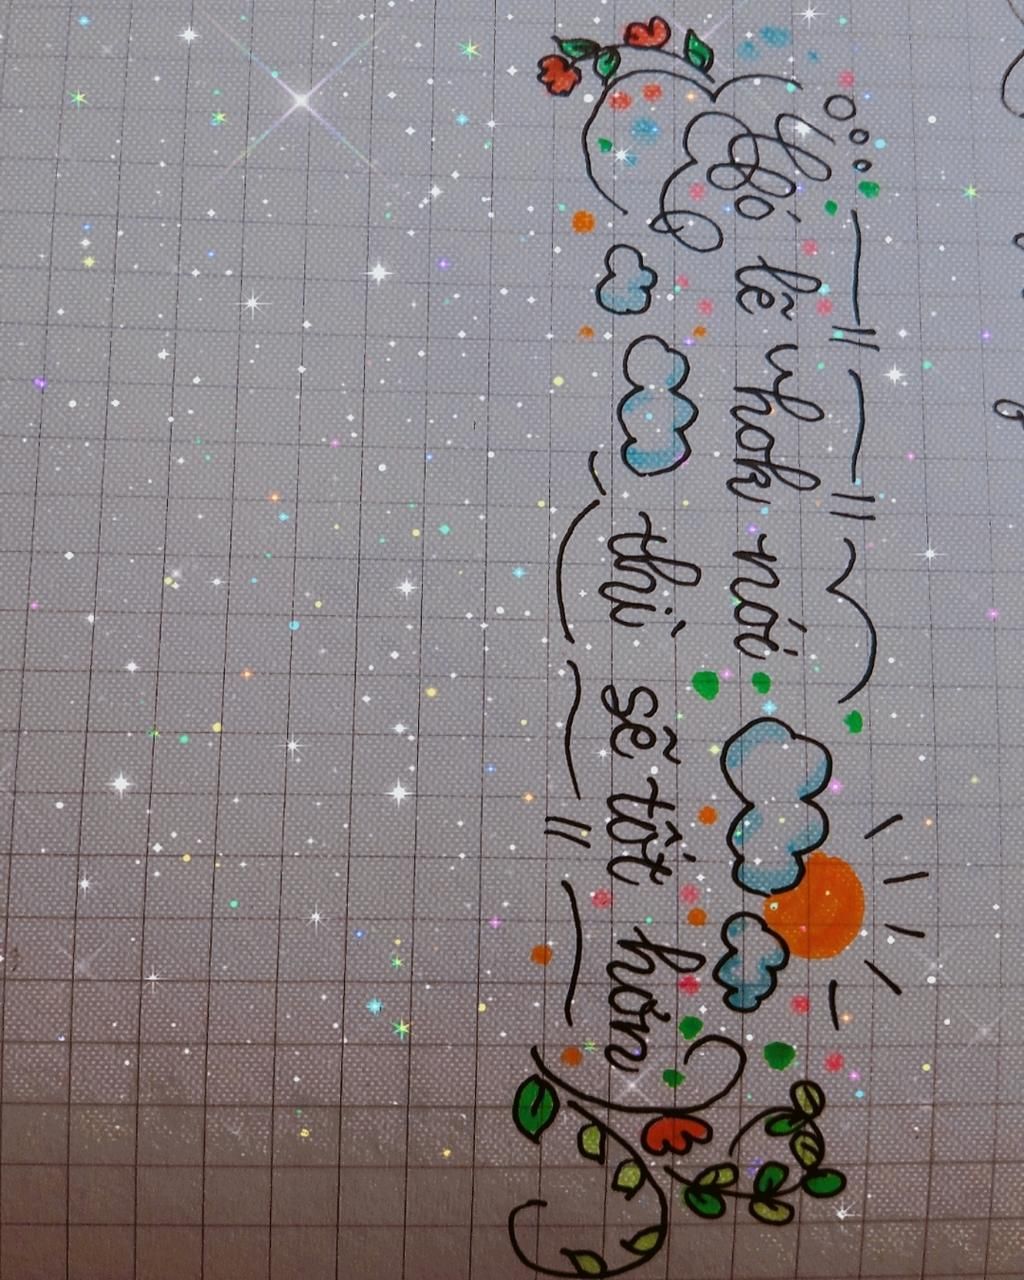 Có lẽ hok nói
thì sẽ tốt hơn